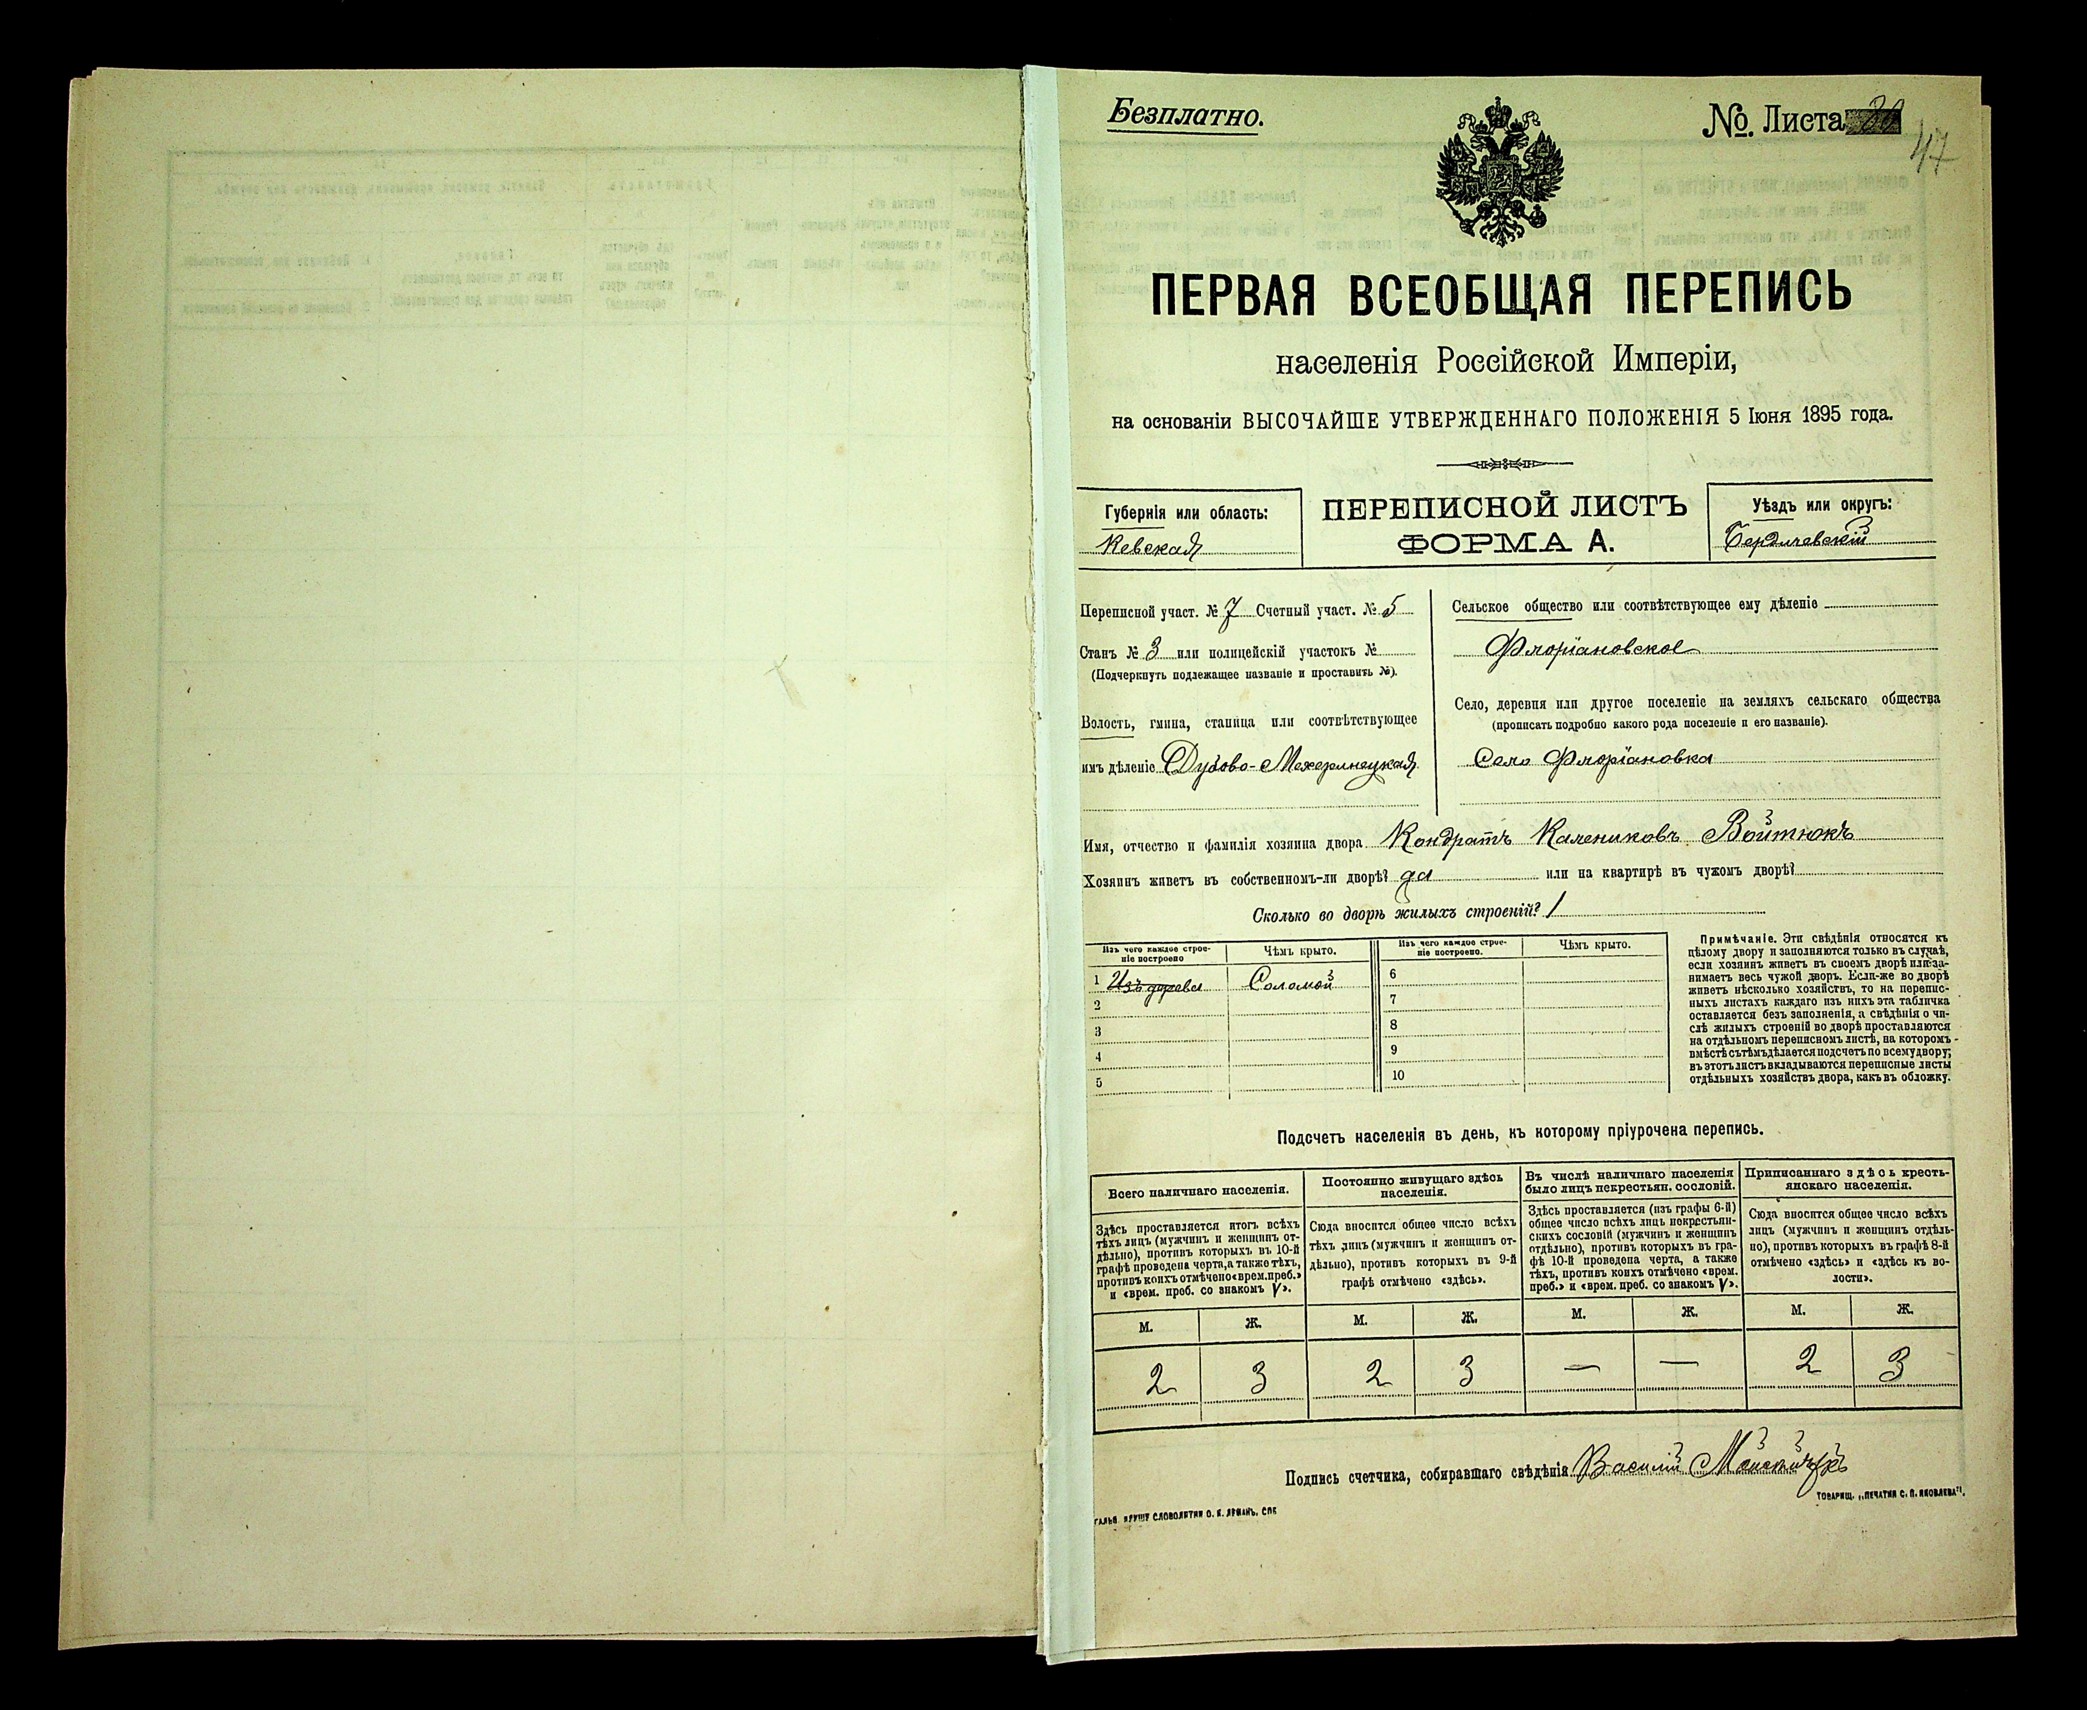 Безплатно.
№. Листа
47
ПЕРВАЯ ВСЕОБЩАЯ ПЕРЕПИСЬ
населенія Россійской Имперіи,
на основаніи ВЫСОЧАЙШЕ УТВЕРЖДЕННАГО ПОЛОЖЕНІЯ 5 Іюня 1895 года.
Губернія или область:
Кевская
ПЕРЕПИСНОЙ ЛИСТЪ
ФОРМА А.
Уѣздъ или округъ:
Бердичевскій
Переписной участ. № 7 Счетный участ. № 5
Станъ № 3 или полицейскій участокъ №
(Подчеркнуть подлежащее названіе и проставить №).
Волость, гмина, станица или соотвѣтствующее
имъ дѣленіе Дубово-Мехеринецкая
Сельское общество или соотвѣтствующее ему дѣленіе
Флоріановское
Село, деревня или другое поселеніе на земляхъ сельскаго общества
(прописать подробно какого рода поселеніе и его названіе).
Село Флоріановка
Имя, отчество и фамилія хозяина двора Кондратъ Калениковъ Войтюкъ
Хозяинъ живетъ въ собственномъ-ли дворѣ? да или на квартирѣ въ чужомъ дворѣ?
Сколько во дворѣ жилыхъ строеній? 1
Изъ чего каждое строе-
ніе построено
Чѣмъ крыто.
Изъ чего каждое строе-
ніе построено.
Чѣмъ крыто.
1 Изъ дерева Соломой 6
2 7
3 8
4 9
5 10
Примѣчаніе. Эти свѣдѣнія относятся къ
цѣлому двору и заполняются только въ случаѣ,
если хозяинъ живетъ въ своемъ дворѣ или за-
нимаетъ весь чужой дворъ. Если-же во дворѣ
живетъ нѣсколько хозяйствъ, то на перепис-
ныхъ листахъ каждаго изъ нихъ эта табличка
оставляется безъ заполненія, а свѣдѣнія о чи-
слѣ жилыхъ строеній во дворѣ проставляются
на отдѣльномъ переписномъ листѣ, на которомъ
вмѣстѣ съ тѣмъ дѣлается подсчетъ по всему двору;
въ этотъ листъ вкладываются переписные листы
отдѣльныхъ хозяйствъ двора, какъ въ обложку.
Подсчетъ населенія въ день, къ которому пріурочена перепись.
Всего наличнаго населенія.
Здѣсь проставляется итогъ всѣхъ
тѣхъ лицъ (мужчинъ и женщинъ от-
дѣльно), противъ которыхъ въ 10-й
графѣ проведена черта, а также тѣхъ,
противъ коихъ отмѣчено «врем. преб.»
и «врем. преб. со знакомъ V».
Постоянно живущаго здѣсь
населенія.
Сюда вносится общее число всѣхъ
тѣхъ лицъ (мужчинъ и женщинъ от-
дѣльно), противъ которыхъ въ 9-й
графѣ отмѣчено «здѣсь».
Въ числѣ наличнаго населенія
было лицъ некрестьян. сословій.
Здѣсь проставляется (изъ графы 6-й)
общее число всѣхъ лицъ некрестьян-
скихъ сословій (мужчинъ и женщинъ
отдѣльно), противъ которыхъ въ гра-
фѣ 10-й проведена черта, а также
тѣхъ, противъ коихъ отмѣчено «врем.
преб.» и «врем. преб. со знакомъ V».
Приписаннаго здѣсь кресть-
янскаго населенія.
Сюда вносится общее число всѣхъ
лицъ (мужчинъ и женщинъ отдѣль-
но), противъ которыхъ въ графѣ 8-й
отмѣчено «здѣсь» и «здѣсь къ во-
лости».
М. Ж. М. Ж. М. Ж. М. Ж.
2 3 2 3 — — 2 3
Подпись счетчика, собиравшаго свѣдѣнія Василій
СЛОВОЛИТНИ О. И. ЛЕМАНЪ, СПБ
ТОВАРИЩ. „ПЕЧАТНЯ С. П. ЯКОВЛЕВА".